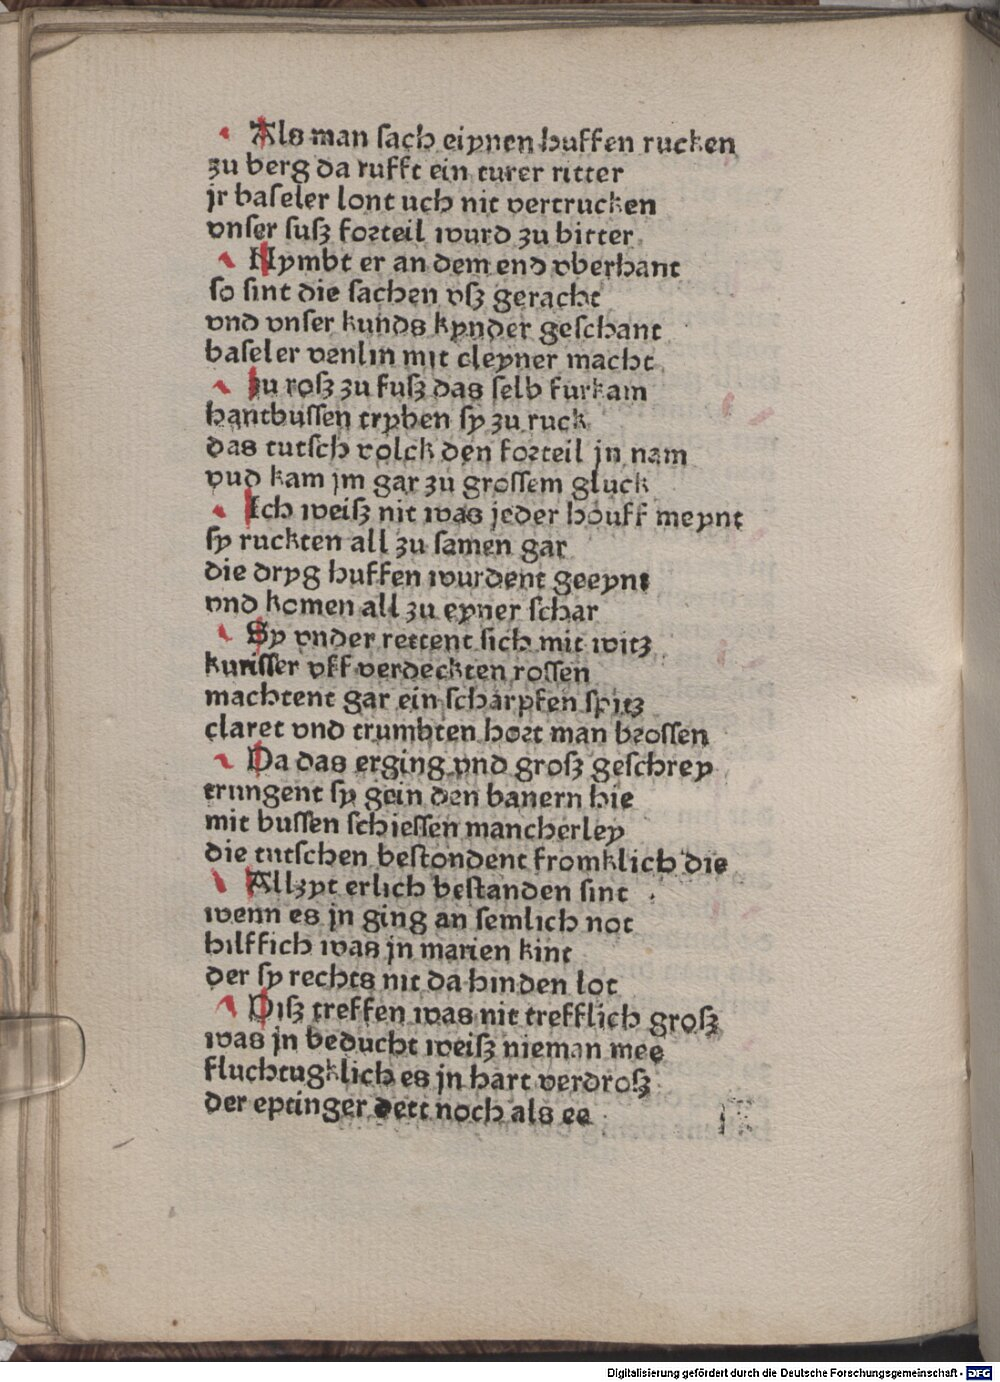 Als man ſach eiynen huffen rucken
zu berg da rufft ein turer ritter
jr baſeler lont uch nit vertrucken
vnſer ſuſz forteil wurd zu bitter
Nymbt er an dem end vberhant
ſo ſint die ſachen vſz geracht
vnd vnſer kunds kynder geſchant
baſeler venlin mit cleyner macht
zu roſz zu fuſz das ſelb furkam
hantbuſſen tryben ſy zu ruck
das tutſch volck den forteil jn nam
vud kam jm gar zu groſſem gluck
Ich weiſz nit was jeder houff meynt
ſy ruckten all zu ſamen gar
die dryg huffen wurdent geeynt
vnd komen all zu eyner ſchar
Sy vnder rettent ſich mit witz
kuriſſer vff verdeckten roſſen
machtent gar ein ſcharpfen ſpitz
claret vnd trumbten hort man broſſen
Da das erging vnd groſz geſchrey
trungent ſy gein den banern hie
mit buſſen ſchieſſen mancherley
die tutſchen beſtondent fromklich die
Allzyt erlich beſtanden ſint
wenn es jn ging an ſemlich not
hilfflich was jn marien kint
der ſy rechts nit da hinden lot
Diſz treffen was nit trefflich groſz
was jn beducht weiſz nieman mee
fluchtugklich es jn hart verdroſz
der eptinger dett noch als ee
Digitalisierung gefördert durch die Deutsche Forschungsgemeinschaft - DFG